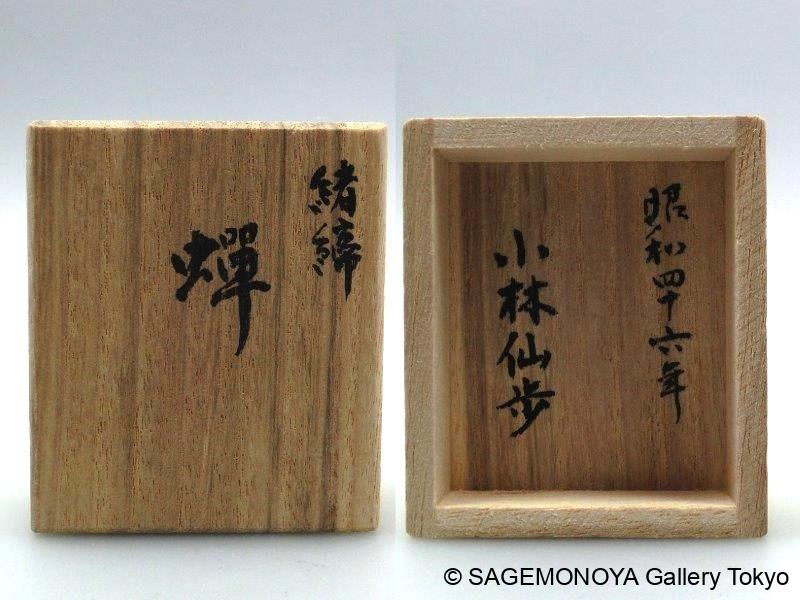 緒締
蟬
昭和四十六年
小林仙歩
© SAGEMONOYA Gallery Tokyo